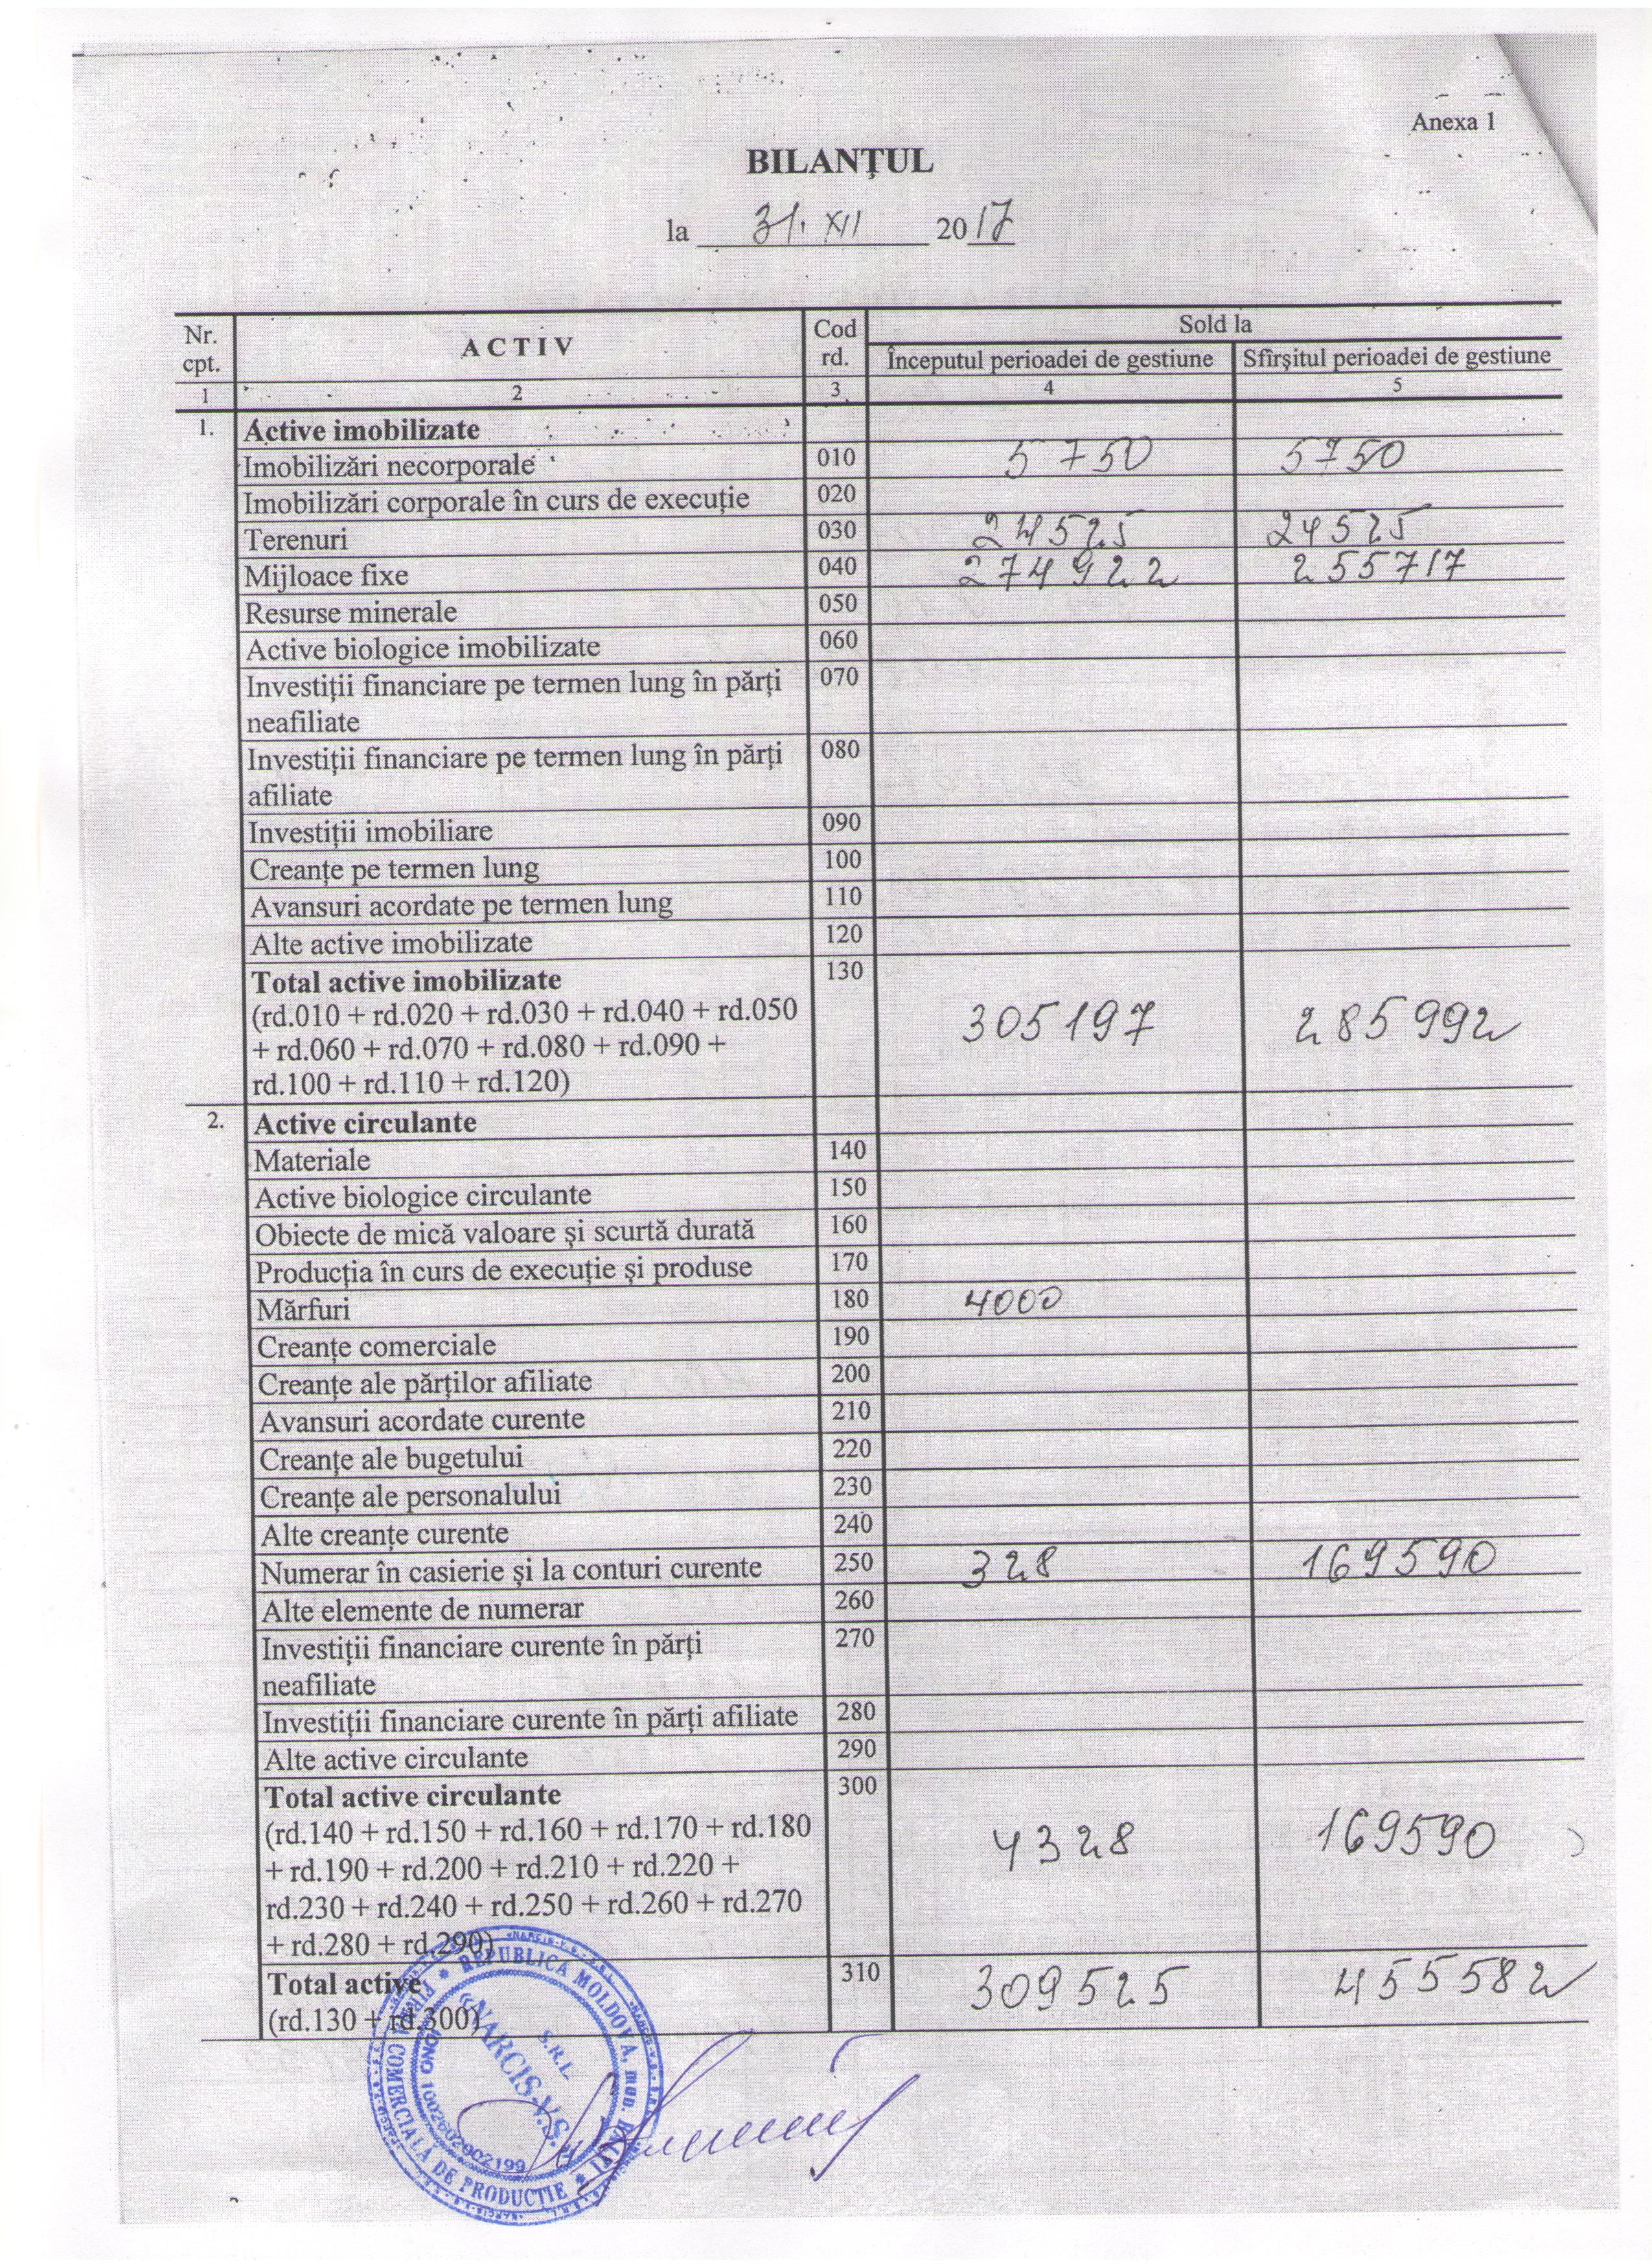 Anexa 1
BILANŢUL
la 31. XII 2017
Nr. cpt. A C T I V Cod rd. Sold la
Începutul perioadei de gestiune Sfîrşitul perioadei de gestiune
1 2 3 4 5
1. Active imobilizate
Imobilizări necorporale 010 5750 5750
Imobilizări corporale în curs de execuţie 020
Terenuri 030 24525 24525
Mijloace fixe 040 274922 255717
Resurse minerale 050
Active biologice imobilizate 060
Investiţii financiare pe termen lung în părţi 070
neafiliate
Investiţii financiare pe termen lung în părţi 080
afiliate
Investiţii imobiliare 090
Creanţe pe termen lung 100
Avansuri acordate pe termen lung 110
Alte active imobilizate 120
Total active imobilizate 130
(rd.010 + rd.020 + rd.030 + rd.040 + rd.050 305197 285992
+ rd.060 + rd.070 + rd.080 + rd.090 +
rd.100 + rd.110 + rd.120)
2. Active circulante
Materiale 140
Active biologice circulante 150
Obiecte de mică valoare şi scurtă durată 160
Producţia în curs de execuţie şi produse 170
Mărfuri 180 4000
Creanţe comerciale 190
Creanţe ale părţilor afiliate 200
Avansuri acordate curente 210
Creanţe ale bugetului 220
Creanţe ale personalului 230
Alte creanţe curente 240
Numerar în casierie şi la conturi curente 250 328 169590
Alte elemente de numerar 260
Investiţii financiare curente în părţi 270
neafiliate
Investiţii financiare curente în părţi afiliate 280
Alte active circulante 290
Total active circulante 300
(rd.140 + rd.150 + rd.160 + rd.170 + rd.180 4328 169590
+ rd.190 + rd.200 + rd.210 + rd.220 +
rd.230 + rd.240 + rd.250 + rd.260 + rd.270
+ rd.280 + rd.290)
Total active 310 309525 455582
(rd.130 + rd.300)
REPUBLICA MOLDOVA, mun.
FIRMA COMERCIALĂ DE PRODUCŢIE
S.R.L.
«NARCIS-V.S.»
1002602002199